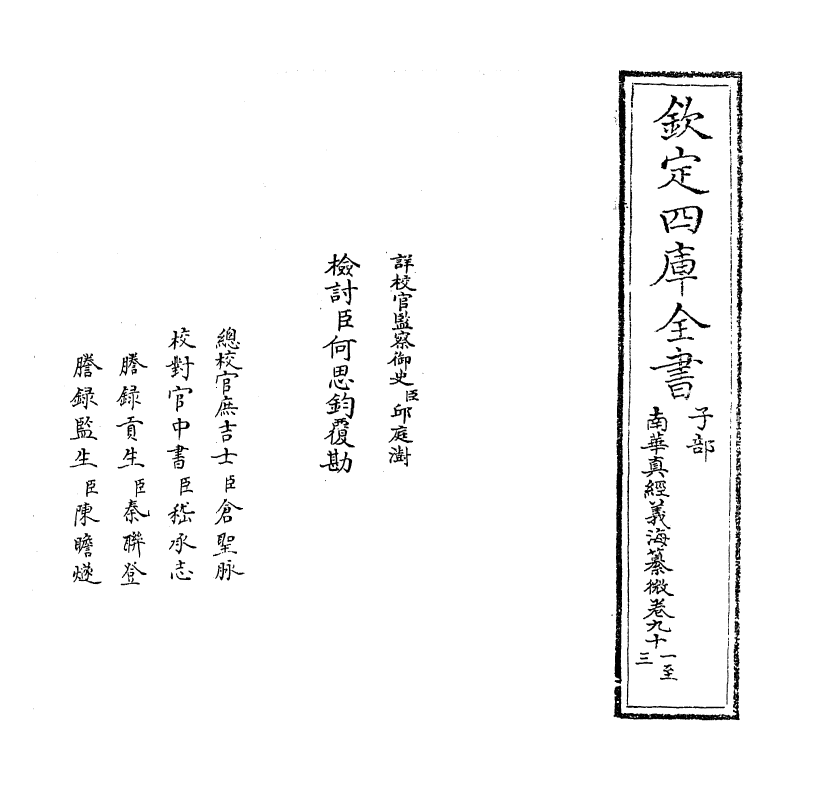 欽定四庫全書
子部
南華真經義海纂微卷九十一至三
詳校官監察御史臣邱庭澍
檢討臣何思鈞覆勘
總校官庶吉士臣倉聖脉
校對官中書臣嵇承志
謄録貢生臣秦聯登
謄録監生臣陳瞻燧